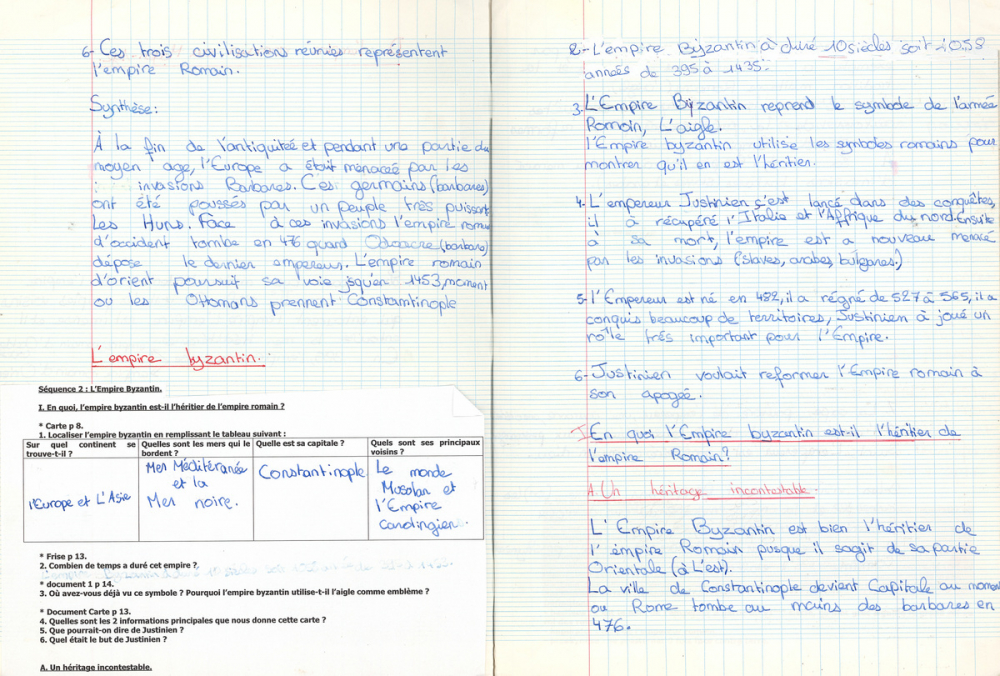 6- Ces trois civilisations réunies représentent
l'empire Romain.
Synthèse:
À la fin de l'antiquiteé et pendant une partie du
moyen age, l'Europe a était menaceé par les
: invasions Barbares. Ces germains (barbares)
ont été poussés par un peuple très puissant
Les Huns. Face à ces invasions l'empire roma
d'occident tombe en 476 quard Odoacre (barbare)
dépose le dernier empereur. L'empire romain
d'orient poursuit sa voie jsqu'en 1453, moment
ou les Ottomans prennent Constantinople
L'empire byzantin.
Séquence 2 : L'Empire Byzantin.
I. En quoi, l'empire byzantin est-il l'héritier de l'empire romain ?
* Carte p 8.
1. Localiser l'empire byzantin en remplissant le tableau suivant :
Sur quel continent se trouve-t-il ?
Quelles sont les mers qui le bordent ?
Quelle est sa capitale ?
Quels sont ses principaux voisins ?
l'Europe et L'Asie
Mer Méditéranée
et la
Mer noire.
Constantinople
Le monde
Musolan et
l'Empire
Carolingien.
* Frise p 13.
2. Combien de temps a duré cet empire ?
* document 1 p 14.
3. Où avez-vous déjà vu ce symbole ? Pourquoi l'empire byzantin utilise-t-il l'aigle comme emblème ?
* Document Carte p 13.
4. Quelles sont les 2 informations principales que nous donne cette carte ?
5. Que pourrait-on dire de Justinien ?
6. Quel était le but de Justinien ?
A. Un héritage incontestable.
2-L'empire Byzantin à duré 10 siècles soit 1058
années de 395 à 1435.
3. L'Empire Byzantin reprend le symbole de l'armeé
Romain, L'aigle.
l'Empire byzantin utilisé les symboles romains pour
montrer qu'il en est l'héritier.
4- L'empereur Justinien s'est lancé dans des conquêtes,
il à récupéré l'Italie et l'Affrique du nord. Ensuite
à sa mort, l'empire est a nouveau menacé
par les invasions (slaves, arabes, bulgares.)
5- l'Empereur est né en 482, il a régné de 527 à 565, il a
conquis beaucoup de territoires, Justinien à joué un
rôle trés important pour l'Empire.
6- Justinien voulait reformer l'Empire romain à
son apogée.
I En quoi l'Empire byzantin est-il l'héritier de
l'empire Romain?
A. Un héritage incontestable.
L'Empire Byzantin est bien l'héritier de
l'empire Romain pusque il sagit de sa partie
Orientale (à L'est).
La ville de Constantinople devient Capitale au moment
ou Rome tombe au mains des barbares en
476.